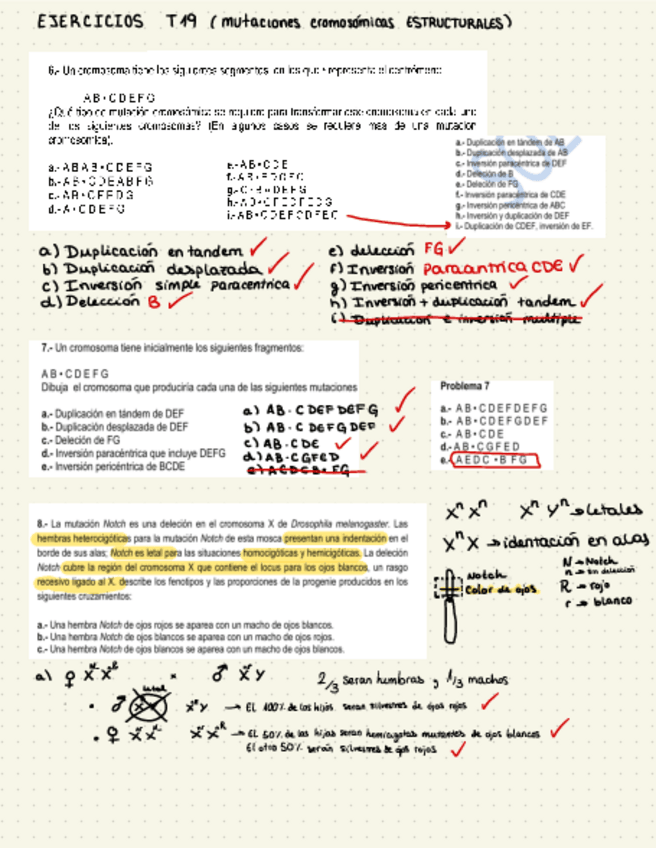 EJERCICIOS T19 (mutaciones cromosómicas ESTRUCTURALES)
6.- Un cromosoma tiene los siguientes segmentos, en los que • representa el centrómero:
AB•CDEFG
¿Qué tipo de mutación cromosómica se requiere para transformar este cromosoma en cada uno
de los siguientes cromosomas? (En algunos casos se requiere más de una mutación
cromosómica).
a.- ABAB•CDEFG
b.- AB•CDEABFG
c.- AB•CFEDG
d.- A•CDEFG
e.- AB•CDE
f.- AB•EDCFG
g.- C•BADEFG
i.- ABCDEFCDFEC
a.- Duplicación en tándem de AB
b.- Duplicación desplazada de AB
c.- Inversión paracéntrica de DEF
d.- Deleción de B
e.- Deleción de FG
f.- Inversión paracéntrica de CDE
g.- Inversión pericéntrica de ABC
h.- Inversión y duplicación de DEF
i.- Duplicación de CDEF, inversión de EF.
a) Duplicación en tandem
b) Duplicación desplazada
c) Inversión simple paracentrica
d) Delección B
e) delección FG
f) Inversión Paracantrica CDE
g) Inversión pericentrica
h) Inversión + duplicación tandem
i) Duplicación e inversión multiple
7.- Un cromosoma tiene inicialmente los siguientes fragmentos:
AB•CDEFG
Dibuja el cromosoma que produciría cada una de las siguientes mutaciones
a.- Duplicación en tándem de DEF
b.- Duplicación desplazada de DEF
c.- Deleción de FG
d.- Inversión paracéntrica que incluye DEFG
e.- Inversión pericéntrica de BCDE
a) AB·CDEFDEFG
b) AB·CDEFGDEF
c) AB·CDE
d) AB·CGFED
e) AEDCB·FG
Problema 7
a.- AB•CDEFDEFG
b.- AB•CDEFGDEF
c.- AB•CDE
d.- AB•CGFED
e. AEDC•BFG
8.- La mutación Notch es una deleción en el cromosoma X de Drosophila melanogaster. Las
hembras heterocigóticas para la mutación Notch de esta mosca presentan una indentación en el
borde de sus alas; Notch es letal para las situaciones homocigóticas y hemicigóticas. La deleción
Notch cubre la región del cromosoma X que contiene el locus para los ojos blancos, un rasgo
recesivo ligado al X. describe los fenotipos y las proporciones de la progenie producidos en los
siguientes cruzamientos:
a.- Una hembra Notch de ojos rojos se aparea con un macho de ojos blancos.
b.- Una hembra Notch de ojos blancos se aparea con un macho de ojos rojos.
c.- Una hembra Notch de ojos blancos se aparea con un macho de ojos blancos.
XⁿXⁿ XⁿYⁿ → letales
XⁿX → identación en alas
Notch
Color de ojos
N → Notch
n → sin delección
R → rojo
r → blanco
a) ♀ XᴺXᴿ × ♂ XʳY 2/3 seran hembras y 1/3 machos
letal
• ♂ XᴿY → El 100% de los hijos seran silvestres de ojos rojos
• ♀ XᴺXʳ XʳXᴿ → El 50% de las hijas seran hemicigotas mutantes de ojos blancos
El otro 50% serán silvestres de ojos rojos